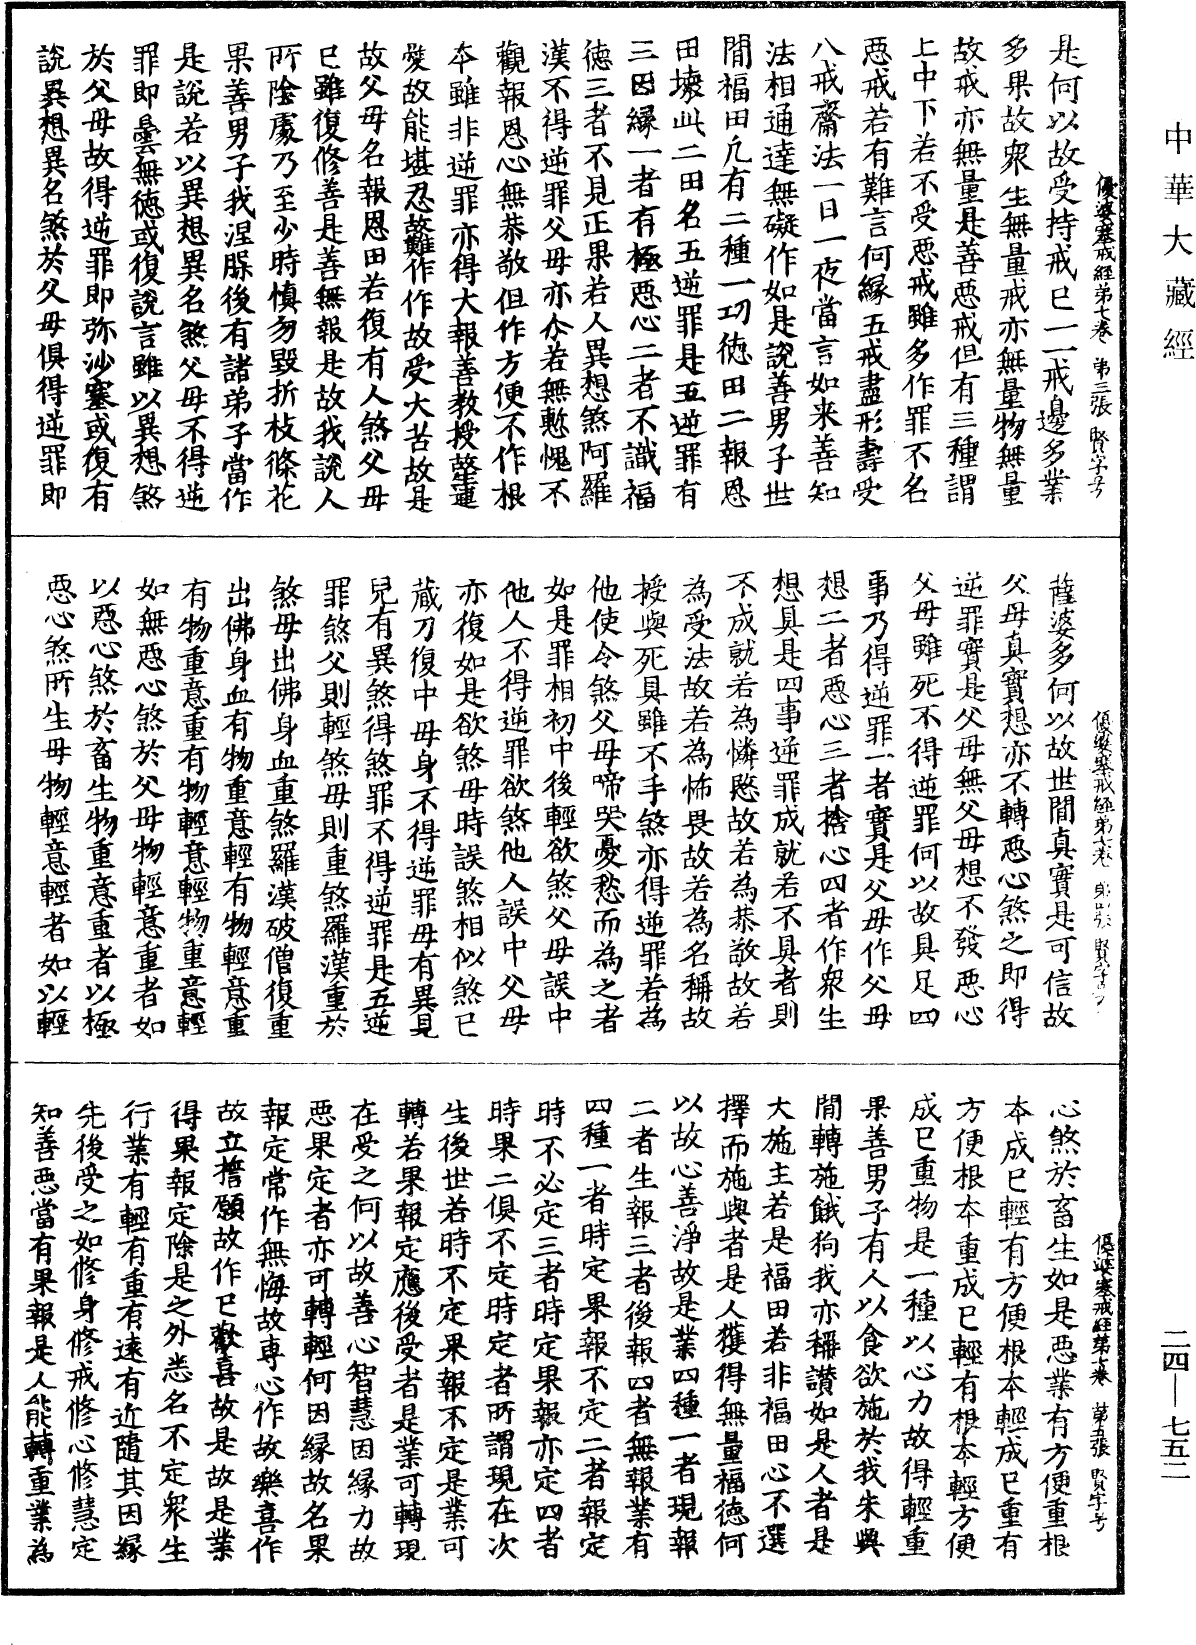 中華大藏經
優婆塞戒經第七卷 第三張 賢字号
是何以故受持戒已一一戒邊多業
多果故衆生無量戒亦無量物無量
故戒亦無量是善惡戒但有三種謂
上中下若不受惡戒雖多作罪不名
惡戒若有難言何緣五戒盡形壽受
八戒齋法一日一夜當言如来善知
法相通達無礙作如是說善男子世
間福田凢有二種一功徳田二報恩
田壞此二田名五逆罪是五逆罪有
三因緣一者有極惡心二者不識福
徳三者不見正果若人異想煞阿羅
漢不得逆罪父母亦尒若無慙愧不
觀報恩心無恭敬但作方便不作根
本雖非逆罪亦得大報善教授故生連
愛故能堪忍故難作作故受大苦故是
故父母名報恩田若復有人煞父母
已雖復修善是善無報是故我說人
所陰處乃至少時慎勿毀折枝條花
果善男子我涅槃後有諸弟子當作
是說若以異想異名煞父母不得逆
罪即曇無徳或復說言雖以異想煞
於父母故得逆罪即弥沙塞或復有
說異想異名煞於父母俱得逆罪即
優婆塞戒經第七卷 第四張 賢字号
薩婆多何以故世間真實是可信故
父母真實想亦不轉惡心煞之即得
逆罪實是父母無父母想不發惡心
父母雖死不得逆罪何以故具足四
事乃得逆罪一者實是父母作父母
想二者惡心三者捨心四者作衆生
想具是四事逆罪成就若不具者則
不成就若為憐愍故若為恭敬故若
為受法故若為怖畏故若為名稱故
授與死具雖不手煞亦得逆罪若為
他使令煞父母啼哭憂愁而為之者
如是罪相初中後輕欲煞父母誤中
他人不得逆罪欲煞他人誤中父母
亦復如是欲煞母時誤煞相似煞已
藏刀復中母身不得逆罪母有異見
兒有異煞得煞罪不得逆罪是五逆
罪煞父則輕煞母則重煞羅漢重於
煞母出佛身血重煞羅漢破僧復重
出佛身血有物重意輕有物輕意重
有物重意重有物輕意輕物重意輕
如無惡心煞於父母物輕意重者如
以惡心煞於畜生物重意重者以極
惡心煞所生母物輕意輕者如以輕
優婆塞戒經第七卷 第五張 賢字号
心煞於畜生如是惡業有方便重根
本成已輕有方便根本輕成已重有
方便根本重成已輕有根本輕方便
成已重物是一種以心力故得輕重
果善男子有人以食欲施於我未與
間轉施餓狗我亦稱讃如是人者是
大施主若是福田若非福田心不選
擇而施與者是人獲得無量福徳何
以故心善淨故是業四種一者現報
二者生報三者後報四者無報業有
四種一者時定果報不定二者報定
時不必定三者時定果報亦定四者
時果二俱不定時定者所謂現在次
生後世若時不定果報不定是業可
轉若果報定應後受者是業可轉現
在受之何以故善心智慧因緣力故
惡果定者亦可轉輕何因緣故名果
報定常作無悔故專心作故樂喜作
故立誓願故作已歡喜故是故是業
得果報定除是之外悉名不定衆生
行業有輕有重有遠有近隨其因緣
先後受之如修身修戒修心修慧定
知善惡當有果報是人能轉重業為
二四—七五二